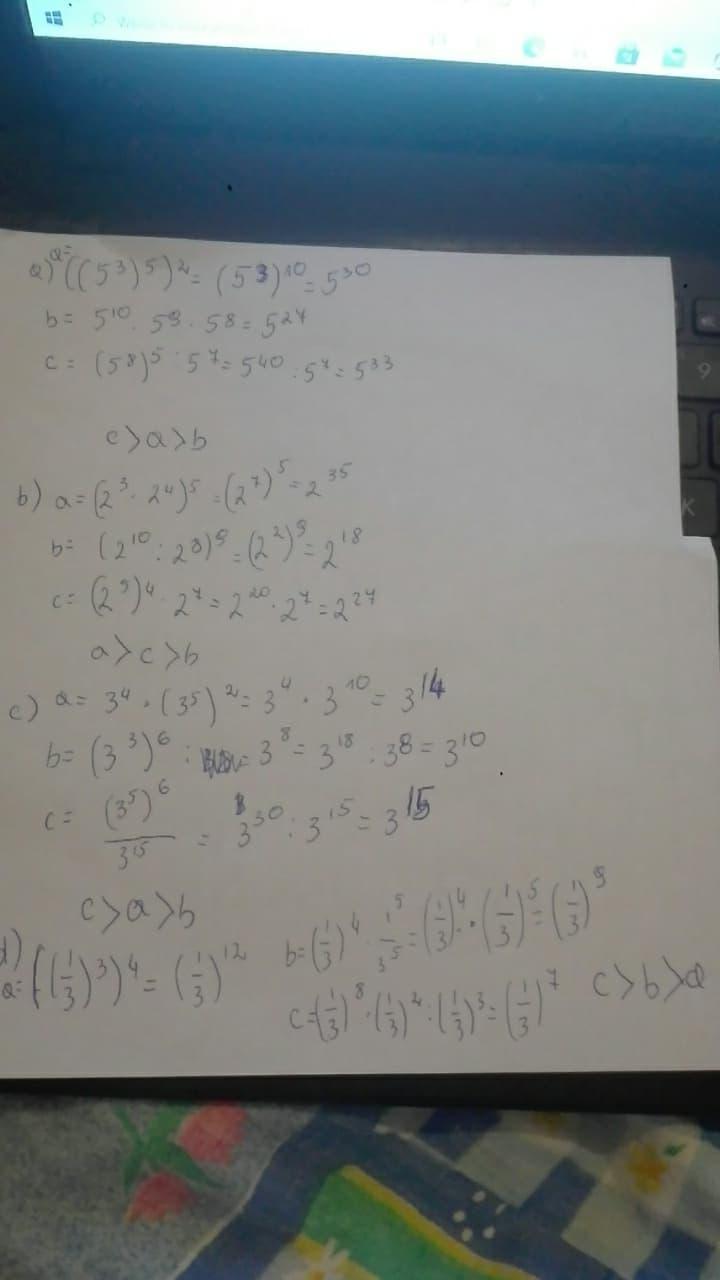 a) a= ((5³)⁵)² = (5³)¹⁰ = 5³⁰
b = 5¹⁰ · 5⁹ · 5⁸ = 5²⁷
c = (5⁸)⁵ : 5⁷ = 5⁴⁰ : 5⁷ = 5³³
c > a > b
b) a = (2³ · 2⁴)⁵ = (2⁷)⁵ = 2³⁵
b = (2¹⁰ : 2⁸)⁹ = (2²)⁹ = 2¹⁸
c = (2⁵)⁴ · 2⁷ = 2²⁰ · 2⁷ = 2²⁷
a > c > b
c) a = 3⁴ · (3⁵)² = 3⁴ · 3¹⁰ = 3¹⁴
b = (3³)⁶ : 3⁸ = 3¹⁸ : 3⁸ = 3¹⁰
c = (3⁵)⁶ / 3¹⁵ = 3³⁰ : 3¹⁵ = 3¹⁵
c > a > b
d)
a = ((1/3)³)⁴ = (1/3)¹²
b = (1/3)⁴ · 1⁵/3⁵ = (1/3)⁴ · (1/3)⁵ = (1/3)⁹
c = (1/3)⁸ · (1/3)² : (1/3)³ = (1/3)⁷
c > b > a
9
K